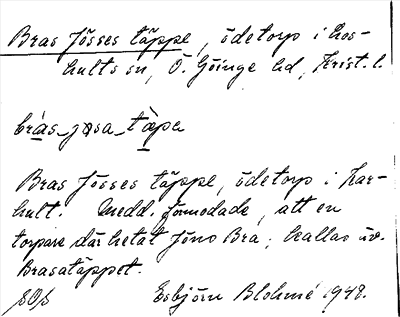 Bras Jösses täppe, ödetorp i Los-
hults sn, Ö. Göinge hd, Krist. l.
brás-jǫsa-tæpa
Bras Jösses täppe, ödetorp i Har-
hult. Medd. förmodade, att en
torpare där hetat Jöns Bra; kallas äv.
Brasatäppet.
Esbjörn Blohmé 1948.